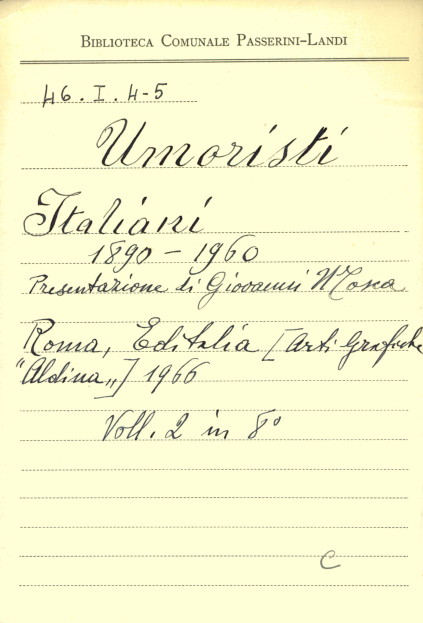 BIBLIOTECA COMUNALE PASSERINI-LANDI
46. I. 4-5
Umoristi
Italiani
1890 - 1960
Presentazione di Giovanni Mosca
Roma, Editalia [Arti Grafiche
"Aldina„] 1966
Voll. 2 in 8°
C